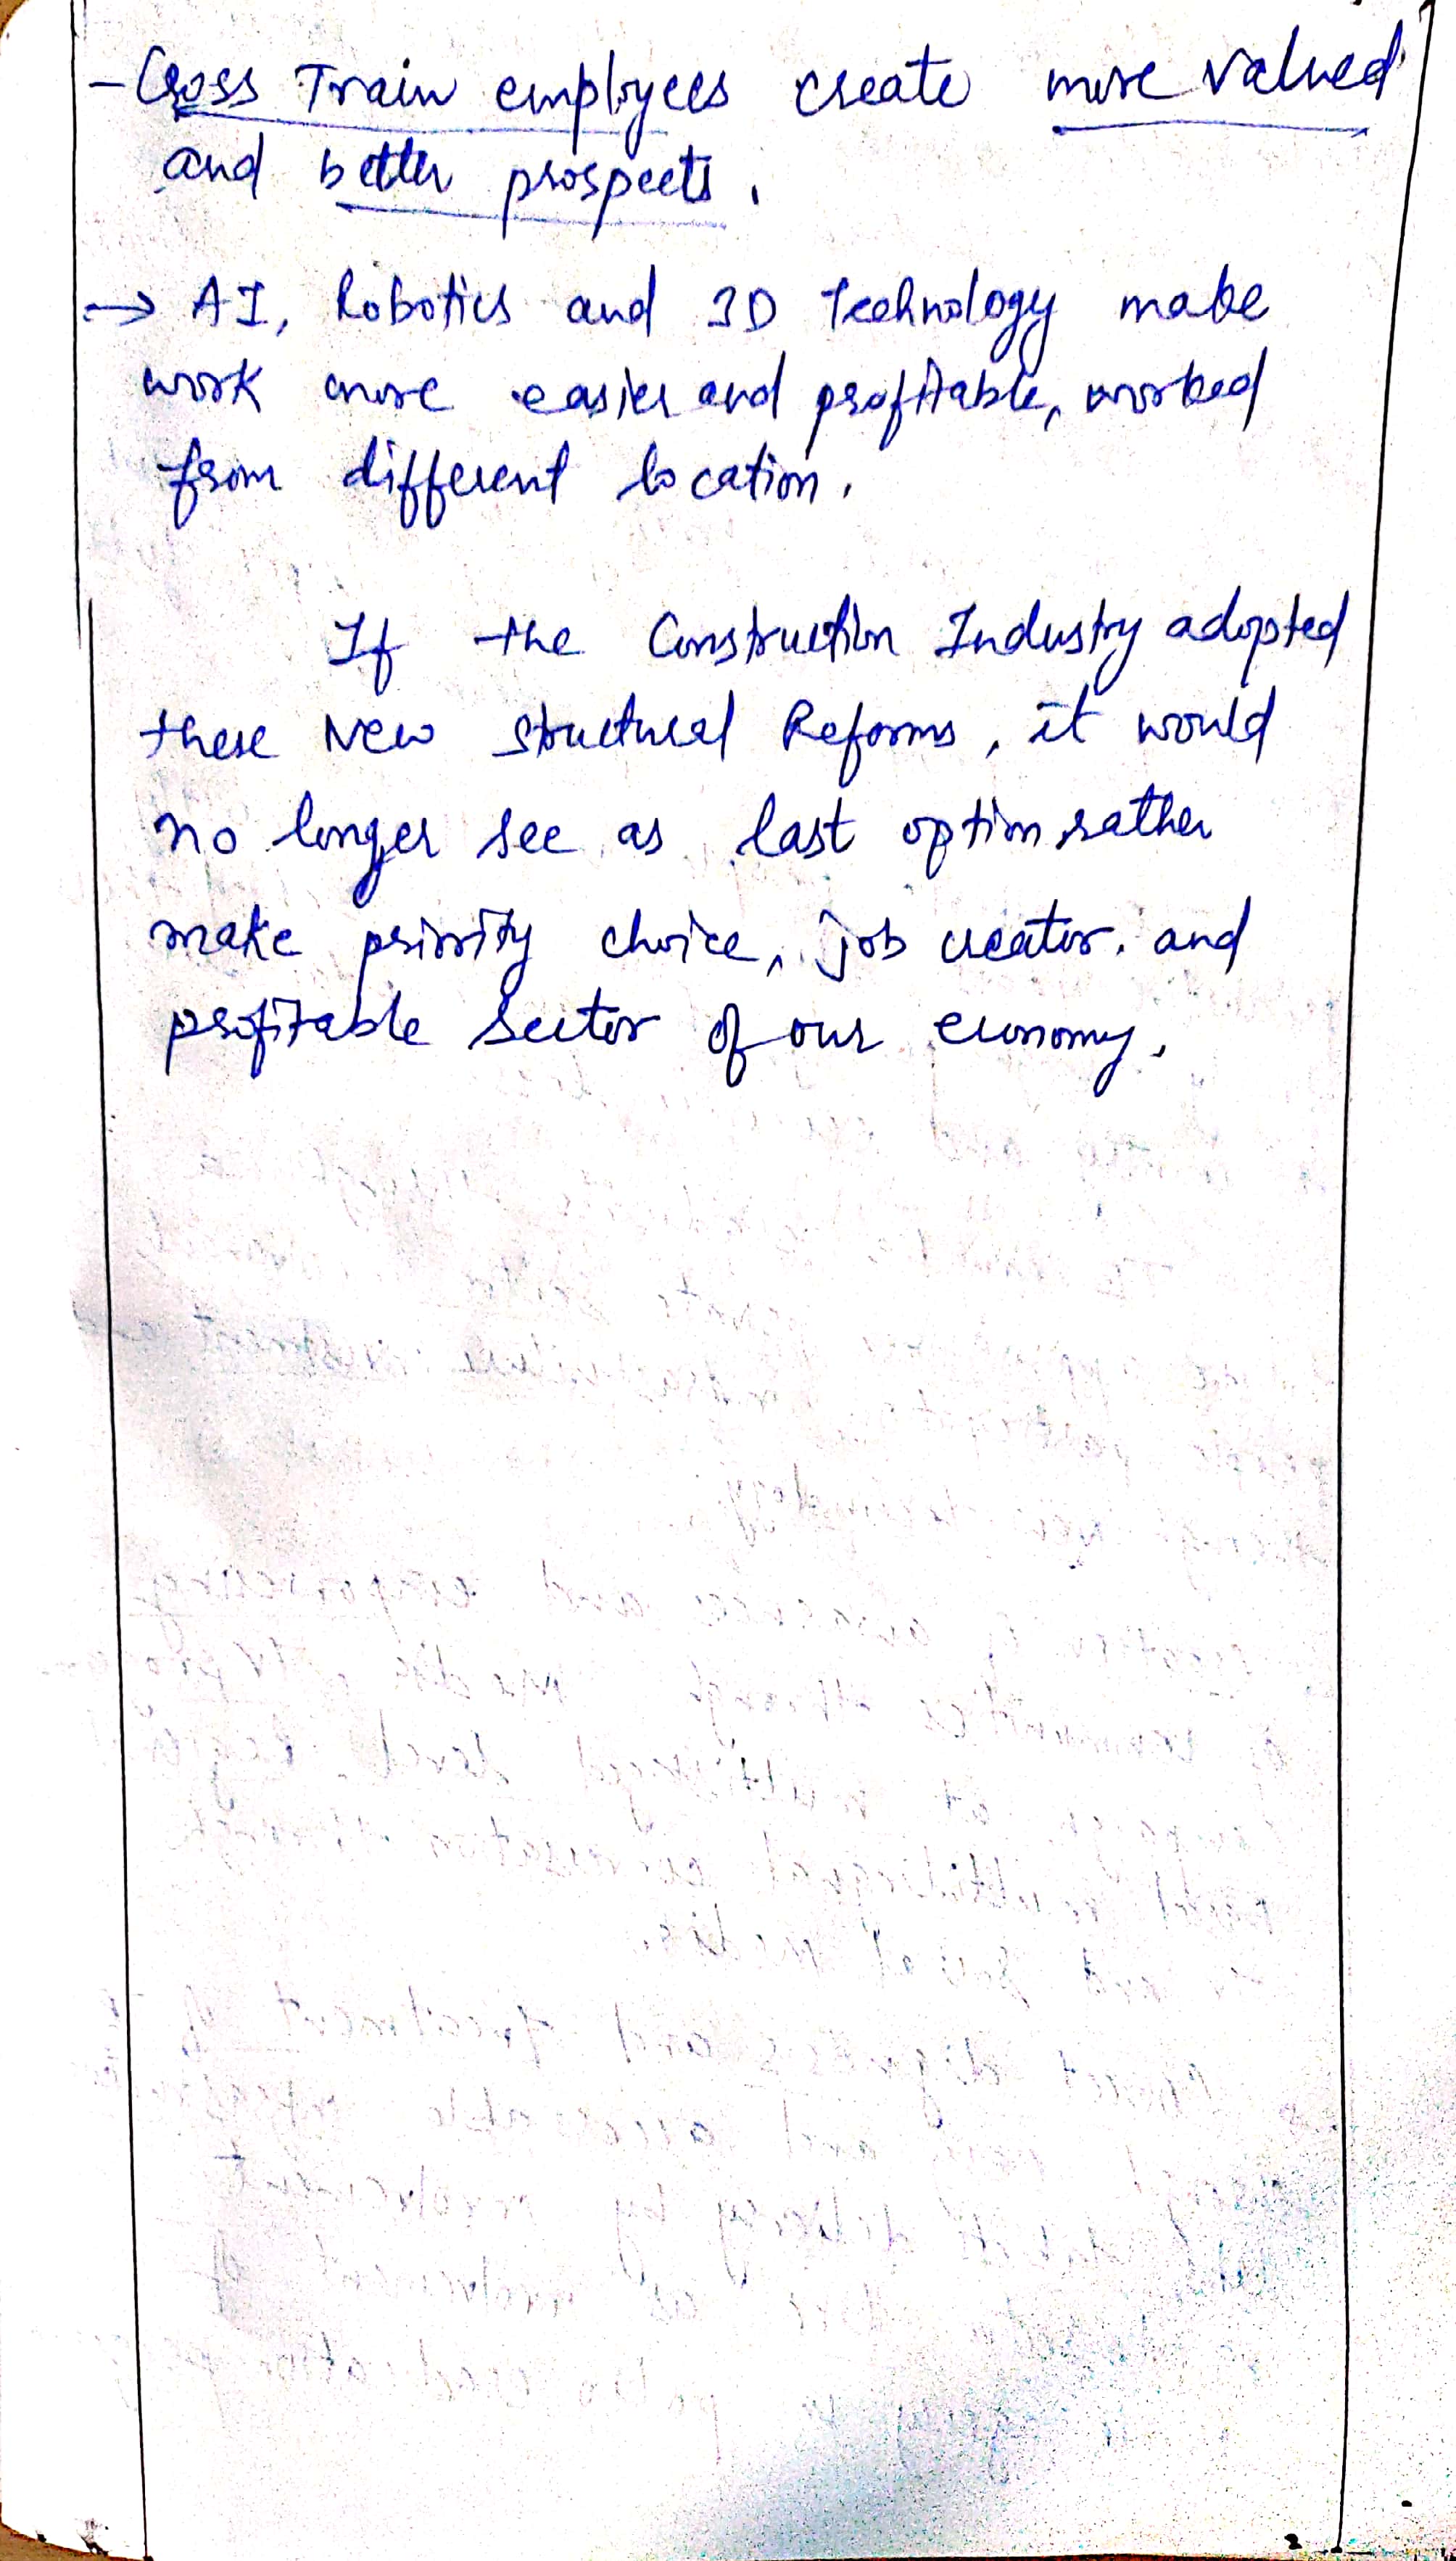 - Cross Train employees create more valued
and better prospects.
→ AI, Robotics and 3D Technology make
work more easier and profitable, worked
from different location.
If the Construction Industry adopted
these New Structural Reforms, it would
no longer see as last option rather
make priority choice, job creator. and
profitable Sector of our economy.